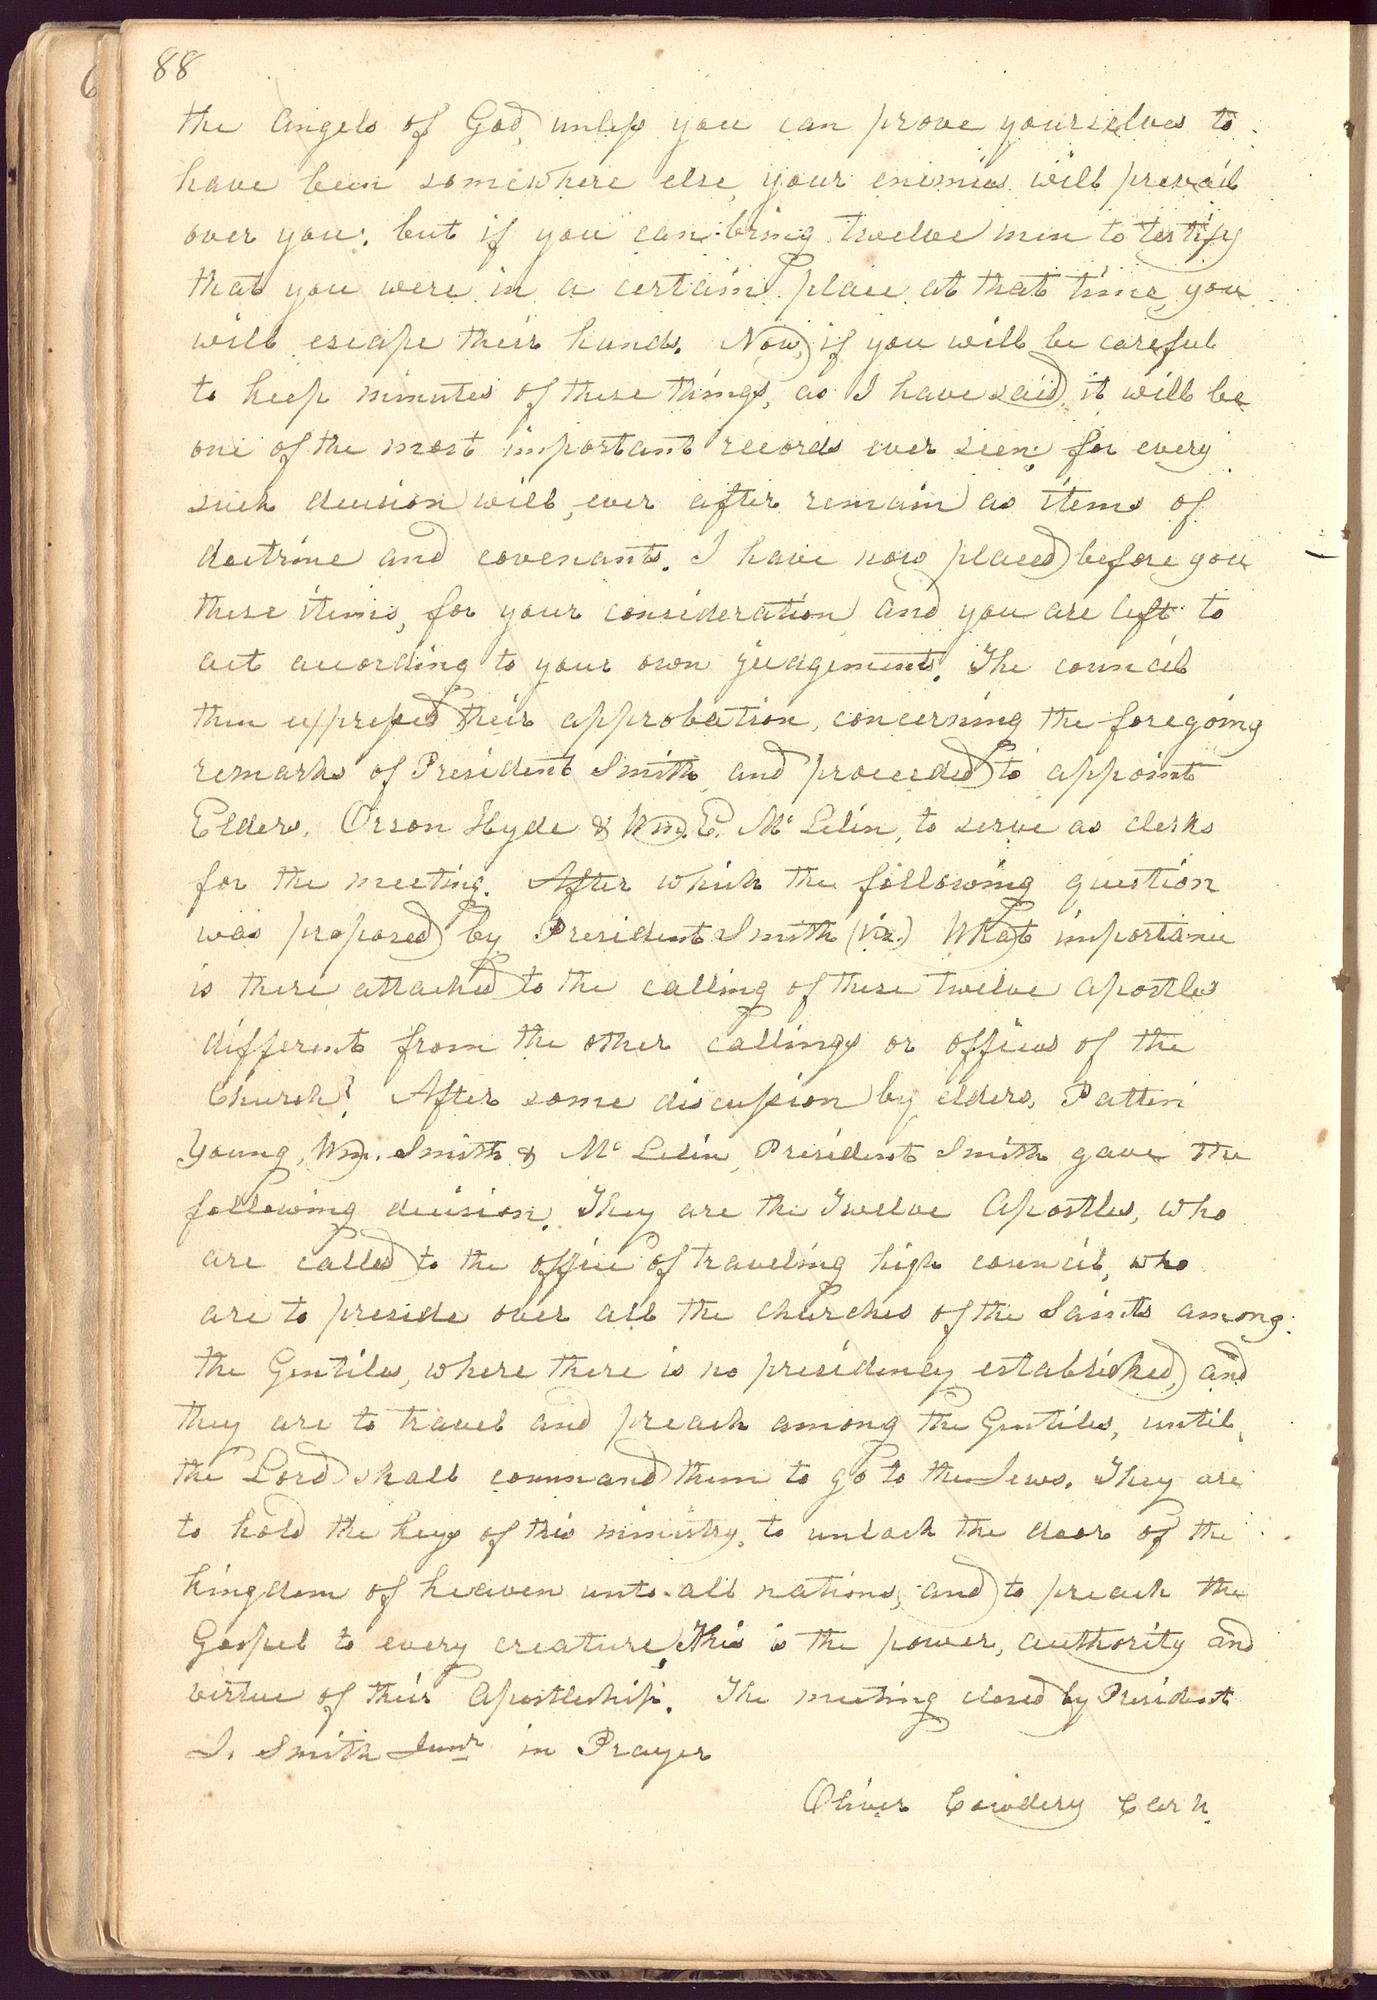 88
the angels of God, unless you can prove yourselves to
have been somewhere else, your enimies will prevail
over you: but if you can bring twelve men to testify
that you were in a certain place at that time, you
will escape their hands. Now, if you will be careful
to keep minutes of these things, as I have said, it will be
one of the most important records ever seen; for every
such decision will, ever after remain as items of
doctrine and covenants. I have now placed before you
these items, for your consideration, and you are left to
act according to your own judgements. The council
then expressed their approbation, concerning the foregoing
remarks of President Smith, and proceeded to appoint
Elders, Orson Hyde & Wm. E. Mc Lelin, to serve as clerks
for the meeting. After which the following question
was proposed by President Smith (viz.) What importance
is there attached to the calling of these twelve apostles
different from the other callings or offices of the
Church? After some discussion by elders, Patten
Young, Wm. Smith & Mc Lelin, President Smith gave the
following decision. They are the Twelve Apostles, who
are called to the office of traveling high council, who
are to preside over all the churches of the Saints among
the Gentiles, where there is no presidency established, and
they are to travel and preach among the Gentiles, until
the Lord shall command them to go to the Jews. They are
to hold the keys of this ministry, to unlock the door of the
kingdom of heaven unto all nations, and to preach the
Gospel to every creature. This is the power, authority and
virtue of their Apostleship. The meeting closed by President
J. Smith Junr in Prayer
Oliver Cowdery Clerk.